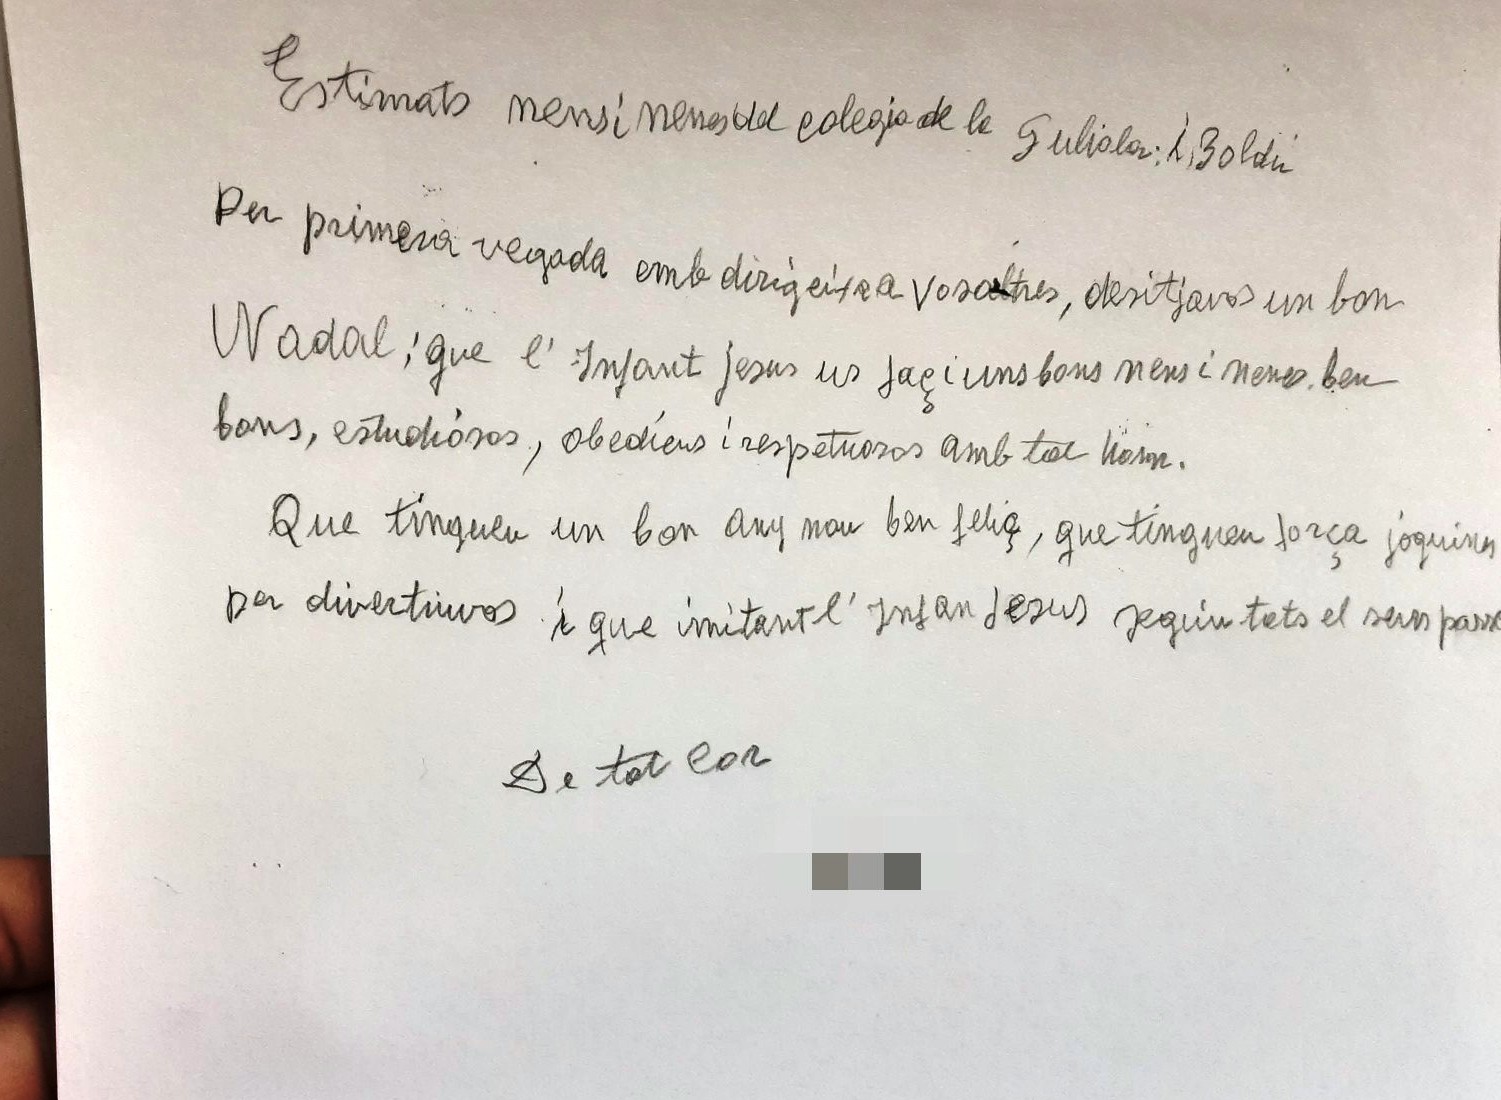 Estimats nens i nenes del colegio de la Fuliola: i, Boldú
Per primera vegada emb dirigeixo a vosaltres, desitjavos un bon
Nadal, i que l' Infant Jesus us façi uns bons nens i nenes. ben
bons, estudiósos, obediens i respetuosos amb tot hom.
Que tingueu un bon any nou ben feliç, que tingueu força joguines
per divertiuvos i que imitant l' Infan Jesus seguiu tots el seus
De tot cor